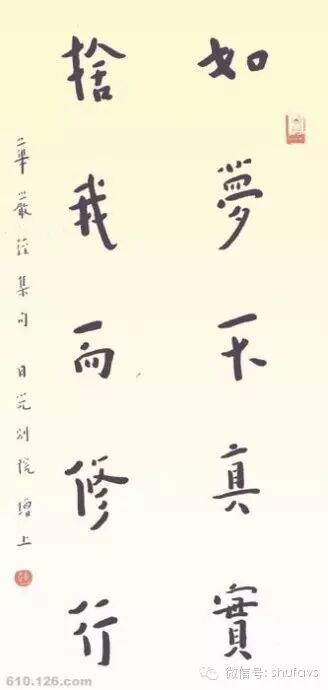 如夢不真實
捨我而修行
華嚴經集句 日光別院 增上
610.126.com
微信号: shufavs